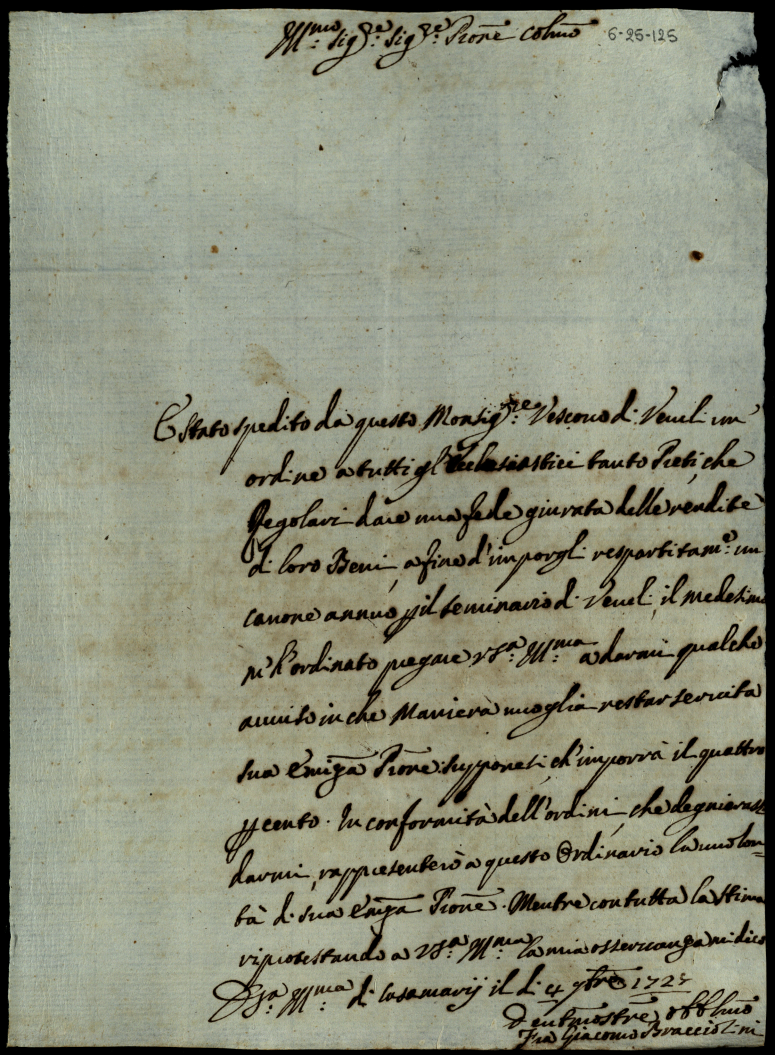 Ill:mo Sig:re Sig:re Prone Colmo 6-25-125
E Stato spedito da questo Monsig:re Vescovo di Veroli un'
ordine a tutti gl'Ecclesiastici tanto Preti, che
Regolari dare una fede giurata delle rendite
di loro Beni, a fine d'imporgli respartitam:e un
canone annuo p il seminario di Veroli, il medesimo
m'hà ordinato pregare VSa: Ill:ma a darmi qualche
aviso in che Maniera voglia restar servita
sua Emza Prone supponesi, ch'imporrà il quattro
p cento. In conformità dell'ordini, che degnierassi
darmi, rappresenterò a questo Ordinario la volon=
tà di sua Emza Prone. Mentre con tutta la stima
riprotestando a VSa: Ill:ma la mia osservanza mi dico
DVSa: Ill:ma di Casamarij il di 4 9bre 172
Obblmo
Fra Giacomo Bracciolini